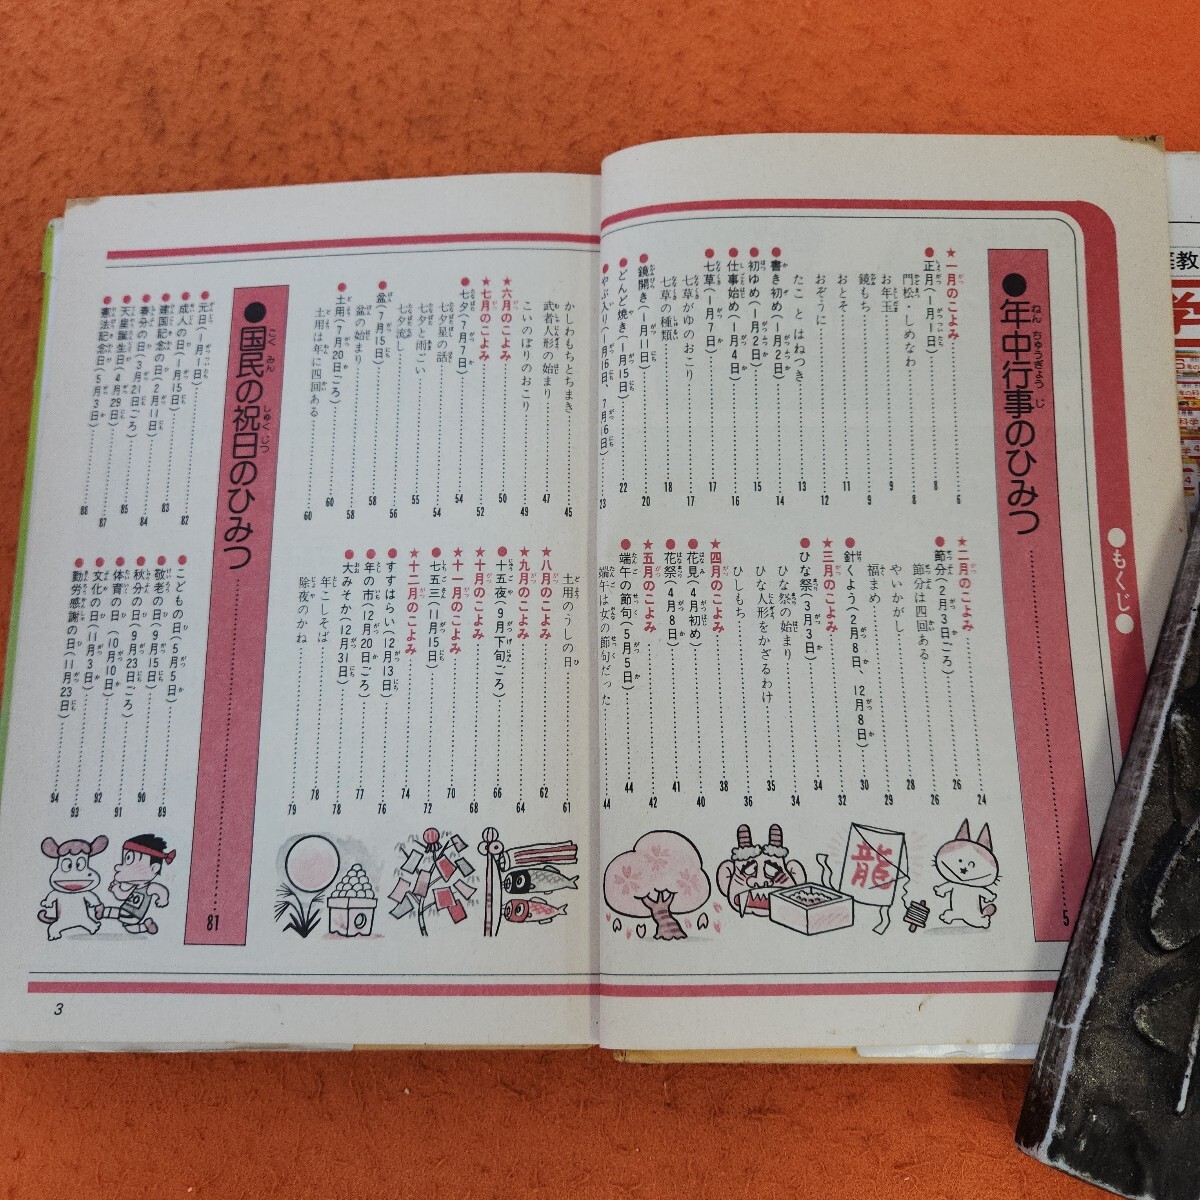 ●もくじ●
●年中行事のひみつ……5
★一月のこよみ……6
●正月(1月1日)……8
門松・しめなわ……8
お年玉……9
鏡もち……9
おとそ……11
おぞうに……12
たことはねつき……13
●書き初め(1月2日)……14
●初ゆめ(1月2日)……15
●仕事始め(1月4日)……16
●七草(1月7日)……17
七草がゆのおこり……17
七草の種類……18
●鏡開き(1月11日)……20
●どんど焼き(1月15日)……22
●やぶ入り(1月16日、7月16日)……23
★二月のこよみ……24
●節分(2月3日ごろ)……26
節分は四回ある……26
やいかがし……28
福まめ……29
●針くよう(2月8日、12月8日)……30
★三月のこよみ……32
●ひな祭(3月3日)……34
ひな祭の始まり……34
ひな人形をかざるわけ……35
ひしもち……36
★四月のこよみ……38
●花見(4月初め)……40
●花祭(4月8日)……41
★五月のこよみ……42
●端午の節句(5月5日)……44
端午は女の節句だった……44
龍
かしわもちとちまき……45
武者人形の始まり……47
こいのぼりのおこり……49
★六月のこよみ……50
★七月のこよみ……52
●七夕(7月7日)……54
七夕星の話……54
七夕と雨ごい……55
七夕流し……56
●盆(7月15日)……58
盆の始まり……58
●土用(7月20日ごろ)……60
土用は年に四回ある……60
土用のうしの日……61
★八月のこよみ……62
★九月のこよみ……64
●十五夜(9月下旬ごろ)……66
★十月のこよみ……68
★十一月のこよみ……70
●七五三(11月15日)……72
★十二月のこよみ……74
●すすはらい(12月13日)……76
●年の市(12月20日ごろ)……77
●大みそか(12月31日)……78
年こしそば……78
除夜のかね……79
●国民の祝日のひみつ……81
●元日(1月1日)……82
●成人の日(1月15日)……83
●建国記念の日(2月11日)……83
●春分の日(3月21日ごろ)……84
●天皇誕生日(4月29日)……85
●憲法記念日(5月3日)……87
88
●こどもの日(5月5日)……89
●敬老の日(9月15日)……90
●秋分の日(9月23日ごろ)……90
●体育の日(10月10日)……91
●文化の日(11月3日)……92
●勤労感謝の日(11月23日)……93
94
3